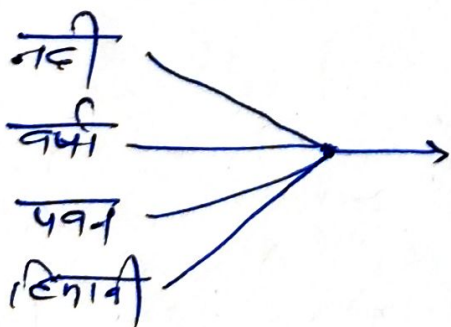 नदी
वर्षा
पवन
हिमानी